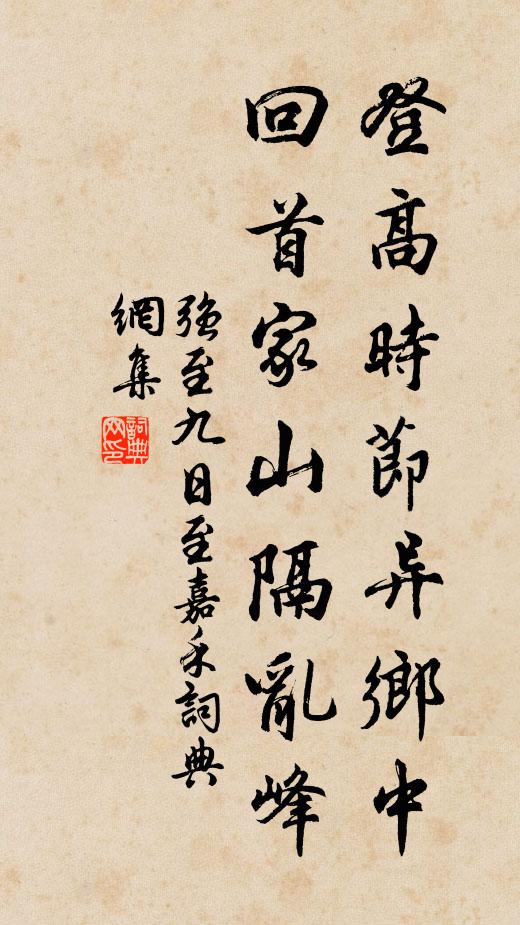 登高時節异鄉中
回首家山隔亂峰
強至九日至嘉禾詞典
網集
詞典
網印